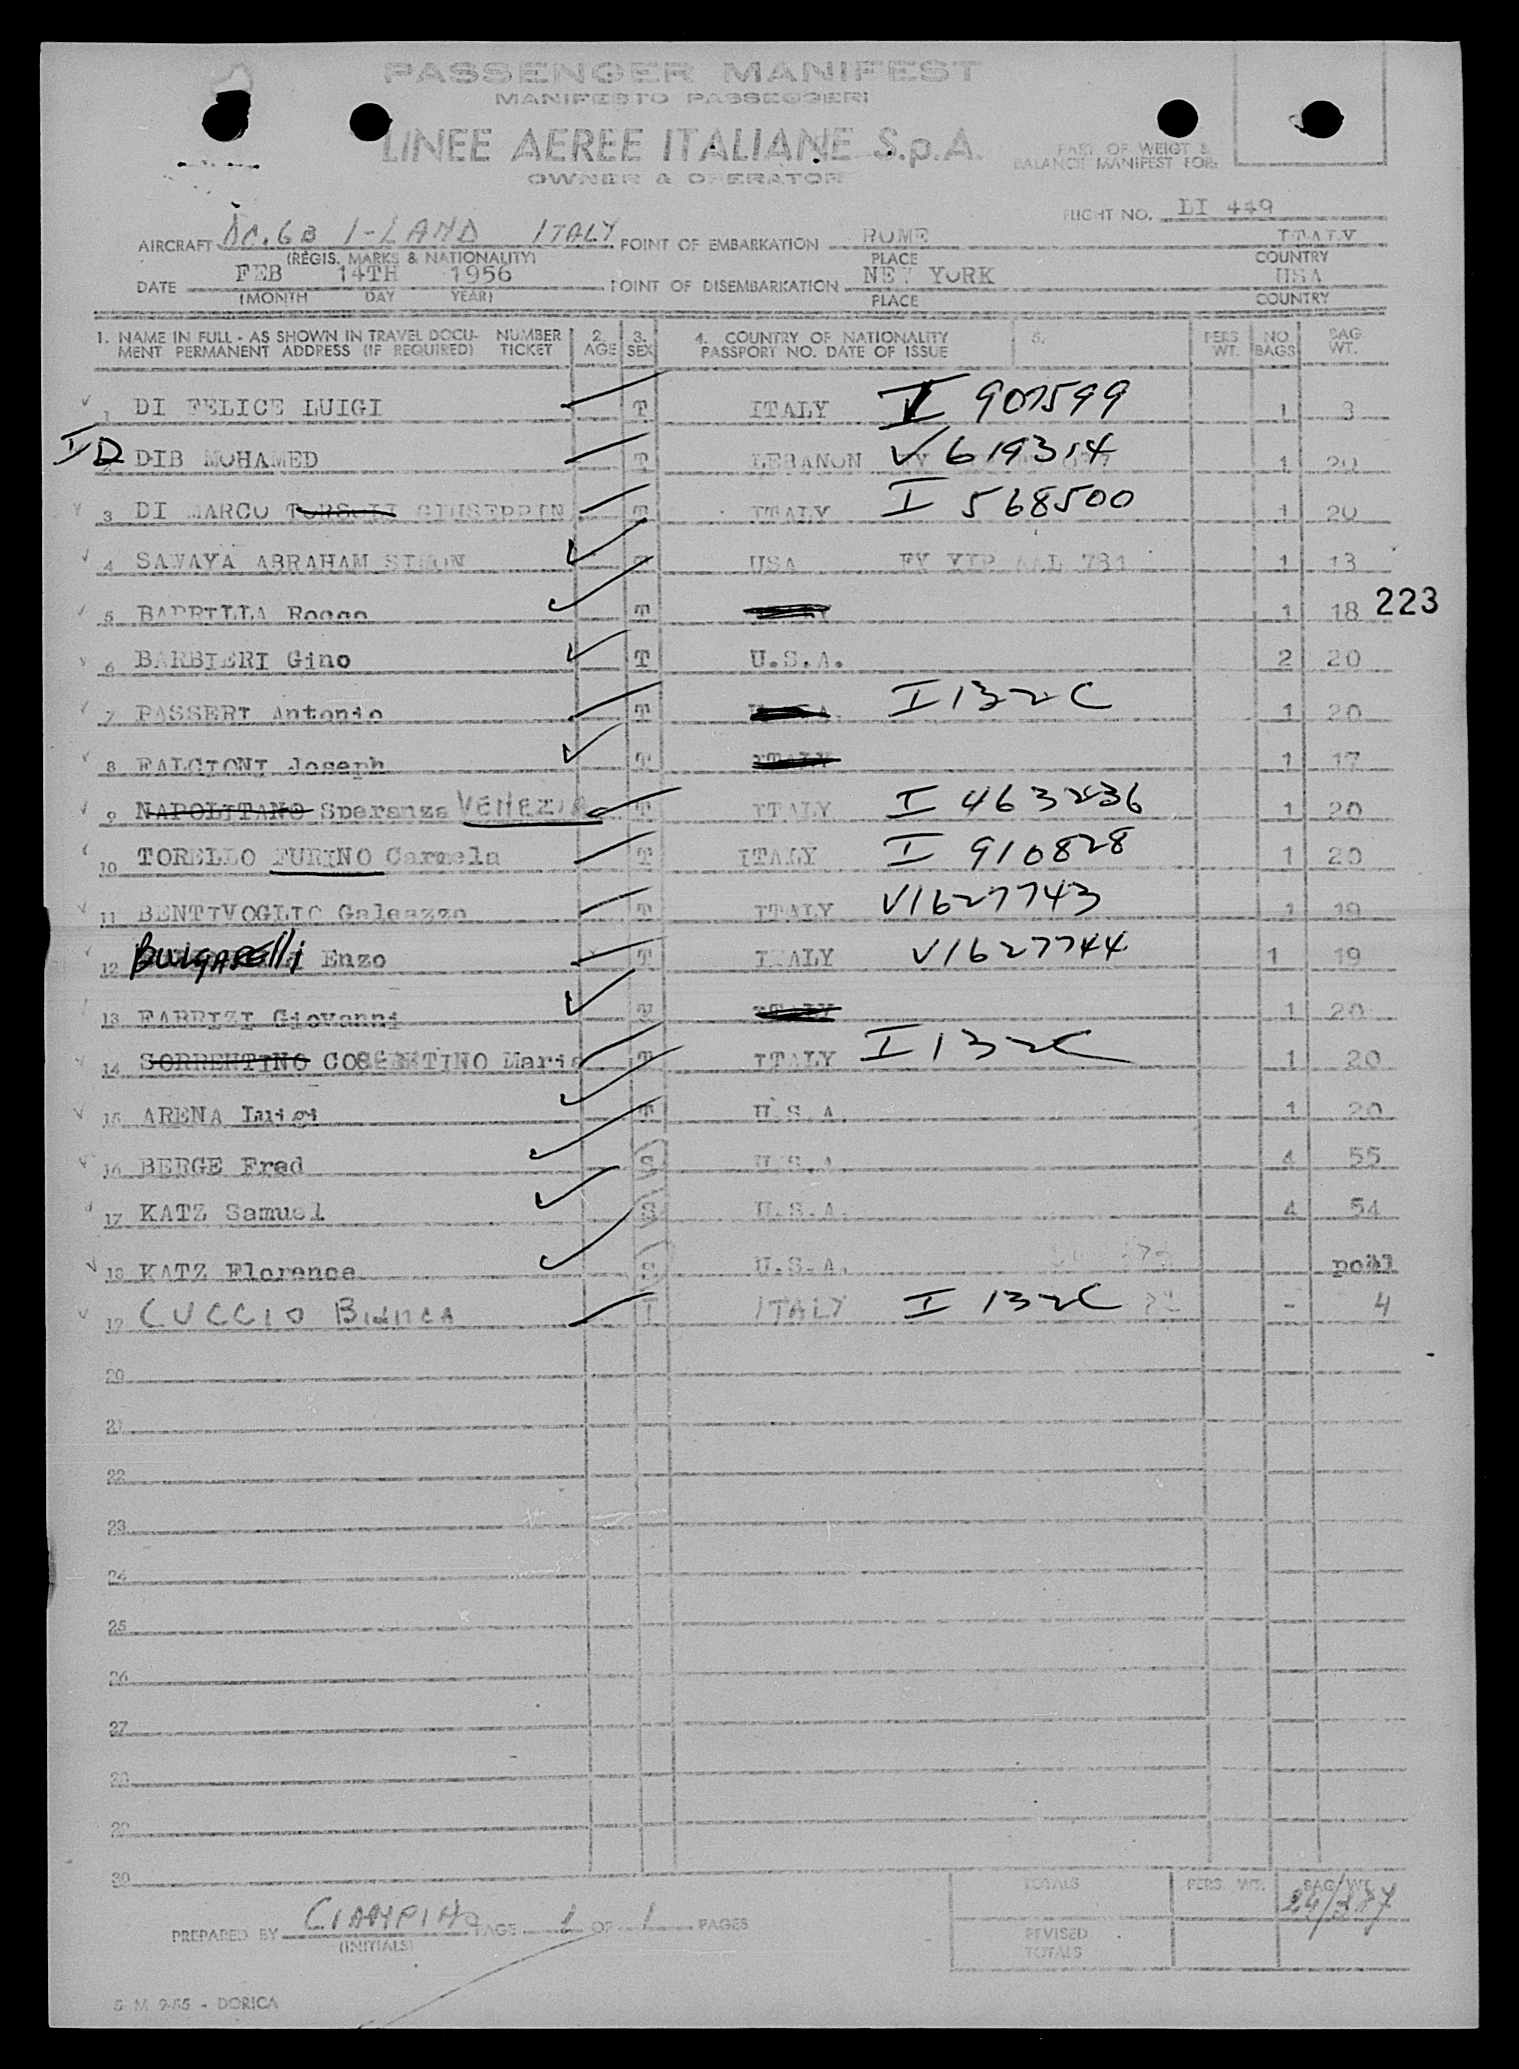 PASSENGER MANIFEST
MANIFESTO PASSEGGERI
LINEE AEREE ITALIANE S.p.A.
OWNER & OPERATOR
PART OF WEIGT &
BALANCE MANIFEST FOR:
FLIGHT NO. LI 449
AIRCRAFT DC.6B I-LAND ITALY POINT OF EMBARKATION ROME ITALY
(REGIS. MARKS & NATIONALITY) PLACE COUNTRY
DATE FEB 14TH 1956 POINT OF DISEMBARKATION NEW YORK USA
(MONTH DAY YEAR) PLACE COUNTRY
1. NAME IN FULL - AS SHOWN IN TRAVEL DOCU- NUMBER 2. 3. 4. COUNTRY OF NATIONALITY 5. PERS NO BAG
MENT PERMANENT ADDRESS (IF REQUIRED) TICKET AGE SEX PASSPORT NO. DATE OF ISSUE WT. BAGS WT.
1 DI FELICE LUIGI T ITALY I 907599 1 8
2 DIB MOHAMED T LEBANON V 619314 1 20
3 DI MARCO TORSOLI GIUSEPPIN T ITALY I 568500 1 20
4 SAWAYA ABRAHAM SIMON T USA 1 13
5 BARRILLA Rocco T 1 18 223
6 BARBIERI Gino T U.S.A. 2 20
7 PASSERI Antonio T I 132C 1 20
8 FALCIONI Joseph T ITALY 1 17
9 NAPOLITANO Speranza VENEZIA T ITALY I 463236 1 20
10 TORELLO FURINO Carmela T ITALY I 910828 1 20
11 BENTIVOGLIO Galeazzo T ITALY V1627743 1 19
12 BULGARELLI Enzo T ITALY V1627744 1 19
13 FABRIZI Giovanni T ITALY 1 20
14 SORRENTINO COSENTINO Maria T ITALY I 132C 1 20
15 ARENA Luigi T U.S.A. 1 20
16 BERGE Fred S U.S.A. 4 55
17 KATZ Samuel S U.S.A. 4 54
18 KATZ Florence S U.S.A. pool
19 CUCCIO Bianca T ITALY I 132C - 4
20
21
22
23
24
25
26
27
28
29
30
TOTALS PERS. WT. BAG. WT.
24/387
PREPARED BY CIAMPINO PAGE 1 OF 1 PAGES
(INITIALS)
REVISED
TOTALS
S M 9-55 - DORICA